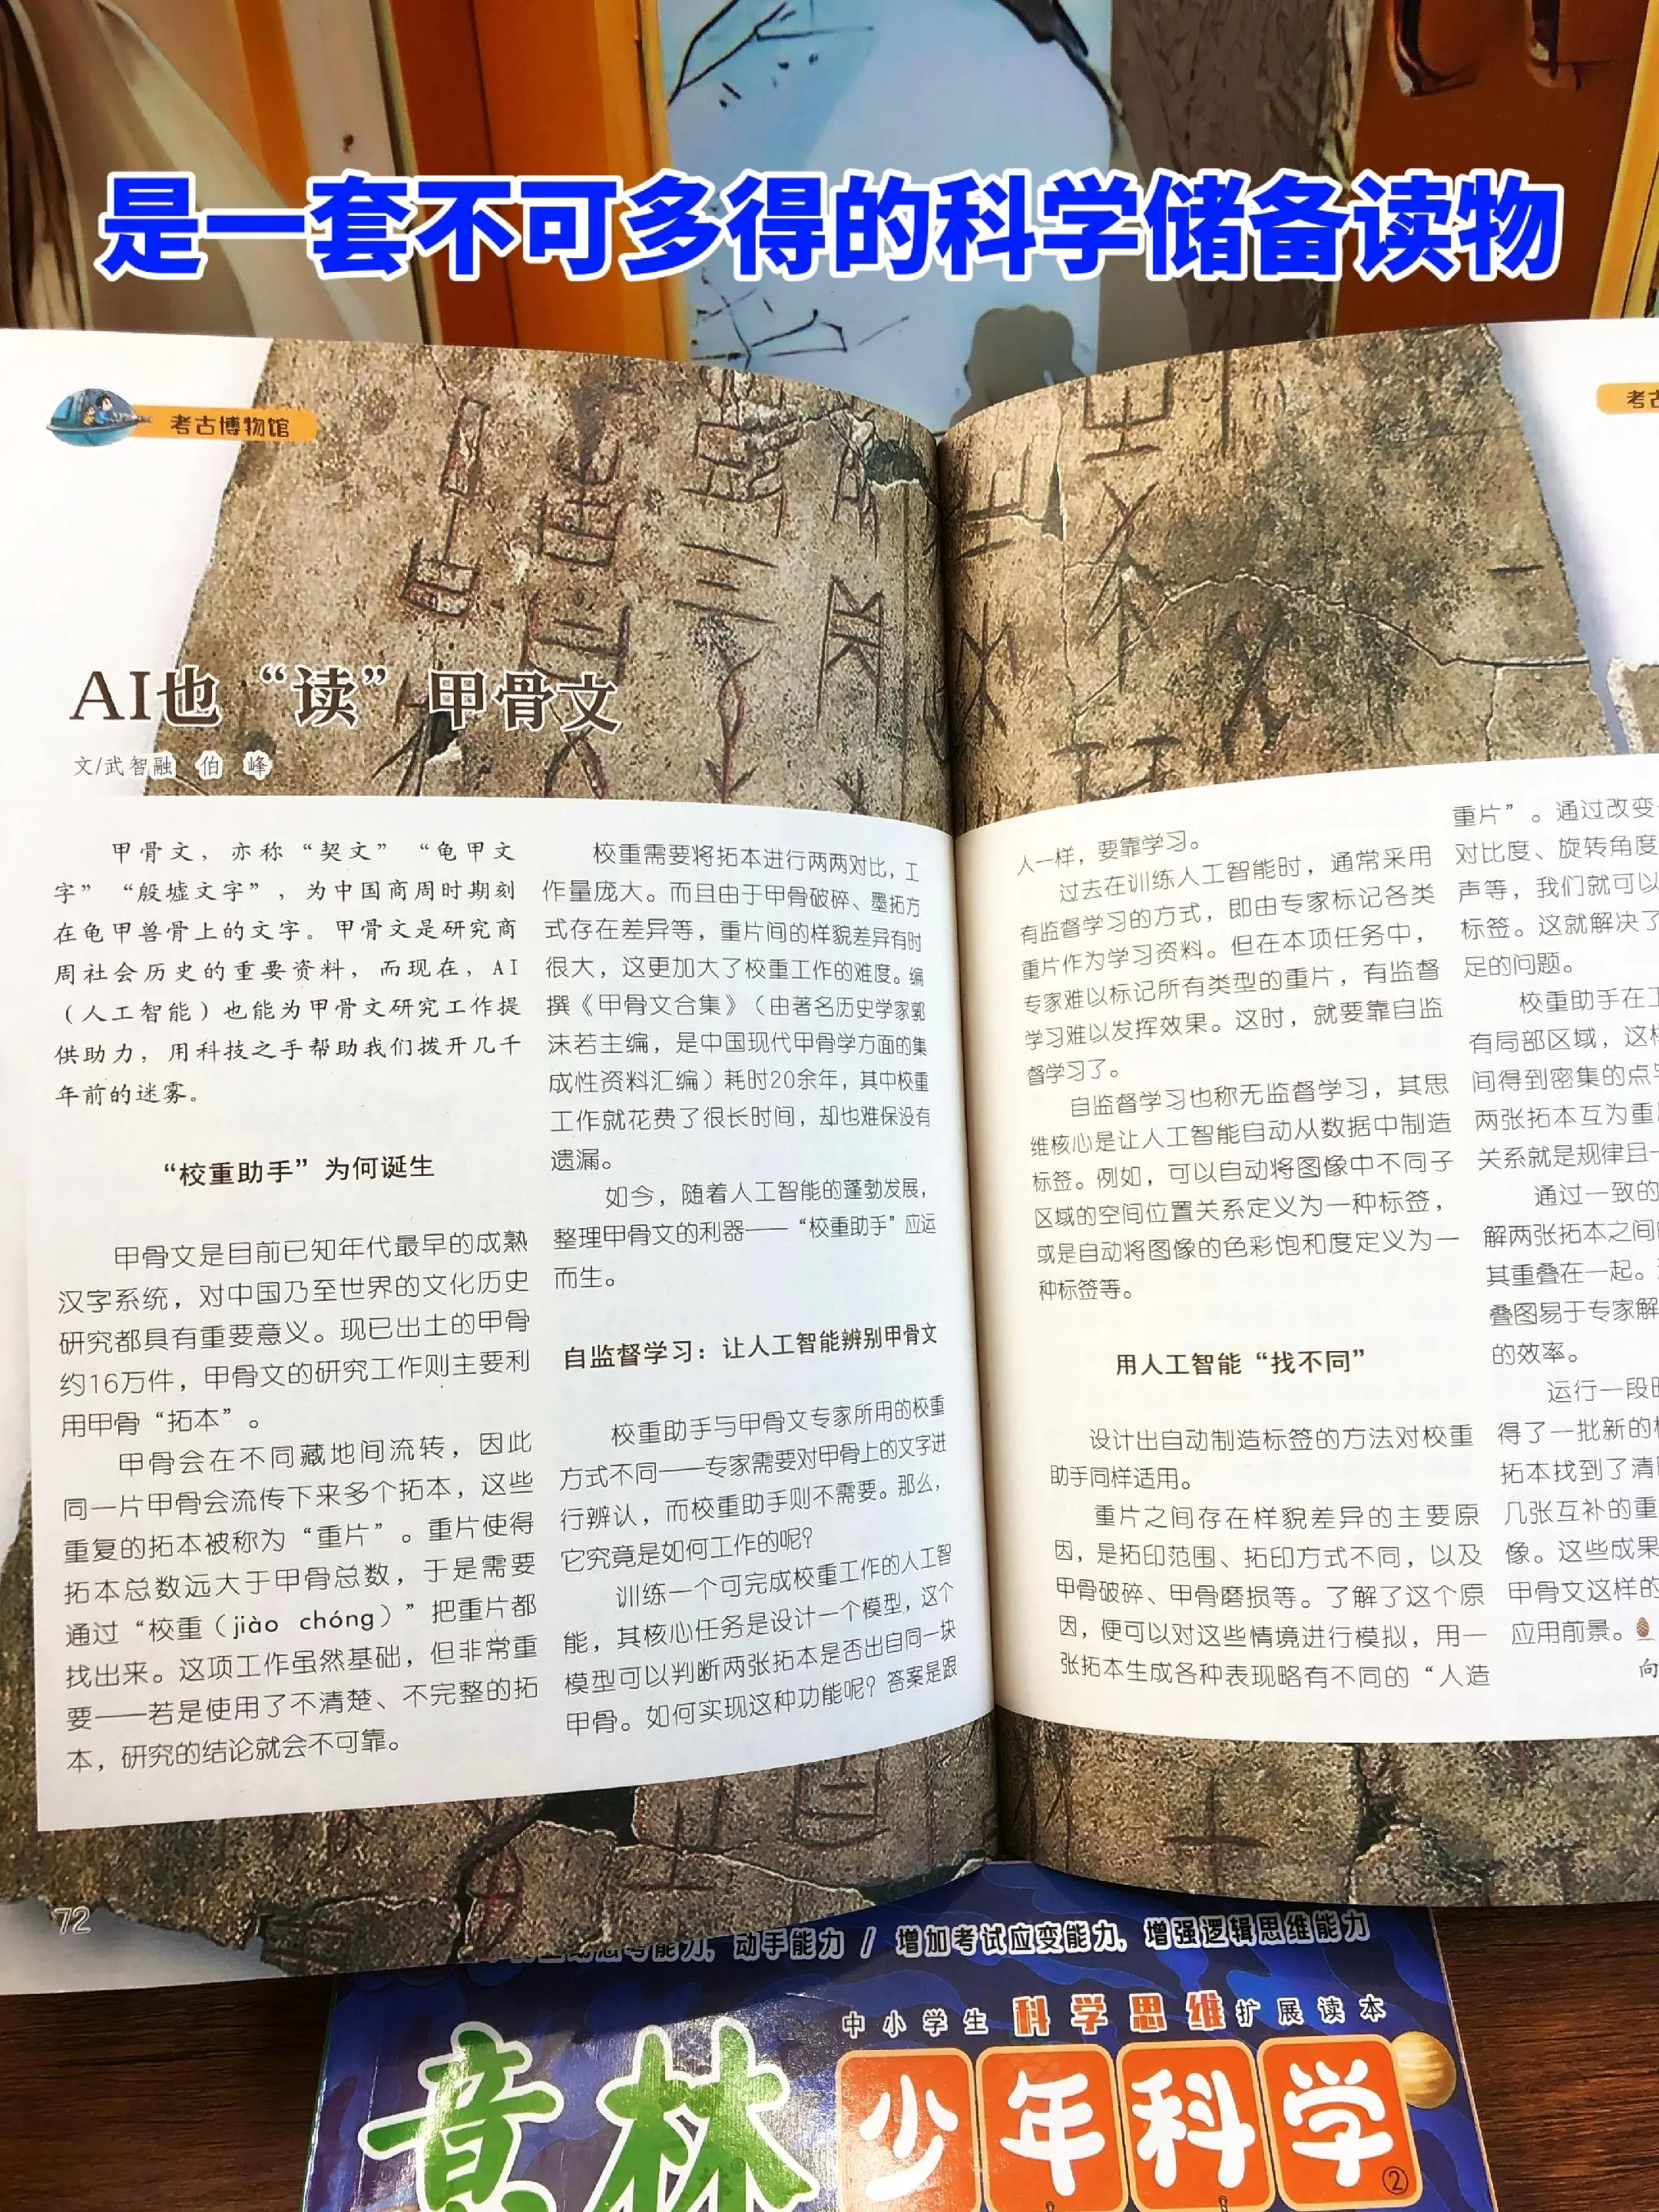 是一套不可多得的科学储备读物
考古博物馆
考古
AI也“读”甲骨文
文/武智融 伯 峰
甲骨文，亦称“契文”“龟甲文
字”“殷墟文字”，为中国商周时期刻
在龟甲兽骨上的文字。甲骨文是研究商
周社会历史的重要资料，而现在，AI
（人工智能）也能为甲骨文研究工作提
供助力，用科技之手帮助我们拨开几千
年前的迷雾。
“校重助手”为何诞生
甲骨文是目前已知年代最早的成熟
汉字系统，对中国乃至世界的文化历史
研究都具有重要意义。现已出土的甲骨
约16万件，甲骨文的研究工作则主要利
用甲骨“拓本”。
甲骨会在不同藏地间流转，因此
同一片甲骨会流传下来多个拓本，这些
重复的拓本被称为“重片”。重片使得
拓本总数远大于甲骨总数，于是需要
通过“校重（jiào chóng）”把重片都
找出来。这项工作虽然基础，但非常重
要——若是使用了不清楚、不完整的拓
本，研究的结论就会不可靠。
校重需要将拓本进行两两对比，工
作量庞大。而且由于甲骨破碎、墨拓方
式存在差异等，重片间的样貌差异有时
很大，这更加大了校重工作的难度。编
撰《甲骨文合集》（由著名历史学家郭
沫若主编，是中国现代甲骨学方面的集
成性资料汇编）耗时20余年，其中校重
工作就花费了很长时间，却也难保没有
遗漏。
如今，随着人工智能的蓬勃发展，
整理甲骨文的利器——“校重助手”应运
而生。
自监督学习：让人工智能辨别甲骨文
校重助手与甲骨文专家所用的校重
方式不同——专家需要对甲骨上的文字进
行辨认，而校重助手则不需要。那么，
它究竟是如何工作的呢？
训练一个可完成校重工作的人工智
能，其核心任务是设计一个模型，这个
模型可以判断两张拓本是否出自同一块
甲骨。如何实现这种功能呢？答案是跟
人一样，要靠学习。
过去在训练人工智能时，通常采用
有监督学习的方式，即由专家标记各类
重片作为学习资料。但在本项任务中，
专家难以标记所有类型的重片，有监督
学习难以发挥效果。这时，就要靠自监
督学习了。
自监督学习也称无监督学习，其思
维核心是让人工智能自动从数据中制造
标签。例如，可以自动将图像中不同子
区域的空间位置关系定义为一种标签，
或是自动将图像的色彩饱和度定义为一
种标签等。
用人工智能“找不同”
设计出自动制造标签的方法对校重
助手同样适用。
重片之间存在样貌差异的主要原
因，是拓印范围、拓印方式不同，以及
甲骨破碎、甲骨磨损等。了解了这个原
因，便可以对这些情境进行模拟，用一
张拓本生成各种表现略有不同的“人造
重片”。通过改变
对比度、旋转角度
声等，我们就可以
标签。这就解决了
足的问题。
校重助手在工
有局部区域，这样
间得到密集的点
两张拓本互为重
关系就是规律且一
通过一致的
解两张拓本之间
其重叠在一起。
叠图易于专家解
的效率。
运行一段
得了一批新的
拓本找到了清
几张互补的重
像。这些成果
甲骨文这样的
应用前景。
向
72
考能力，动手能力 / 增加考试应变能力，增强逻辑思维能力
中小学生科学思维扩展读本
意林 少年科学
②